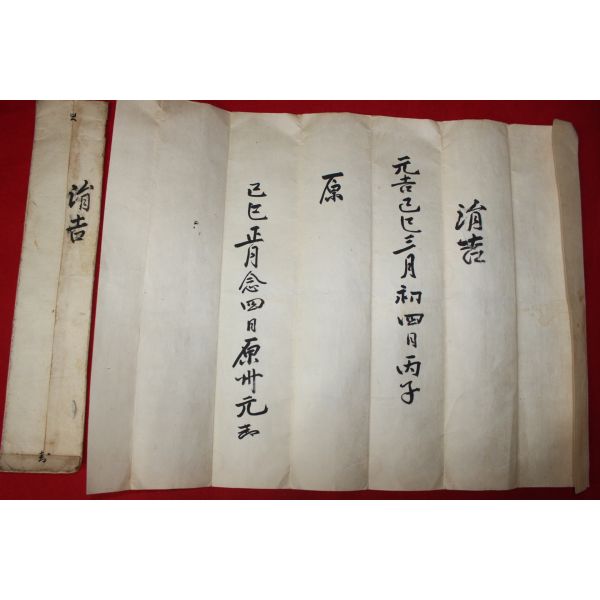 涓吉
元吉己巳三月初四日丙子
原
己巳正月念四日原州元
涓吉